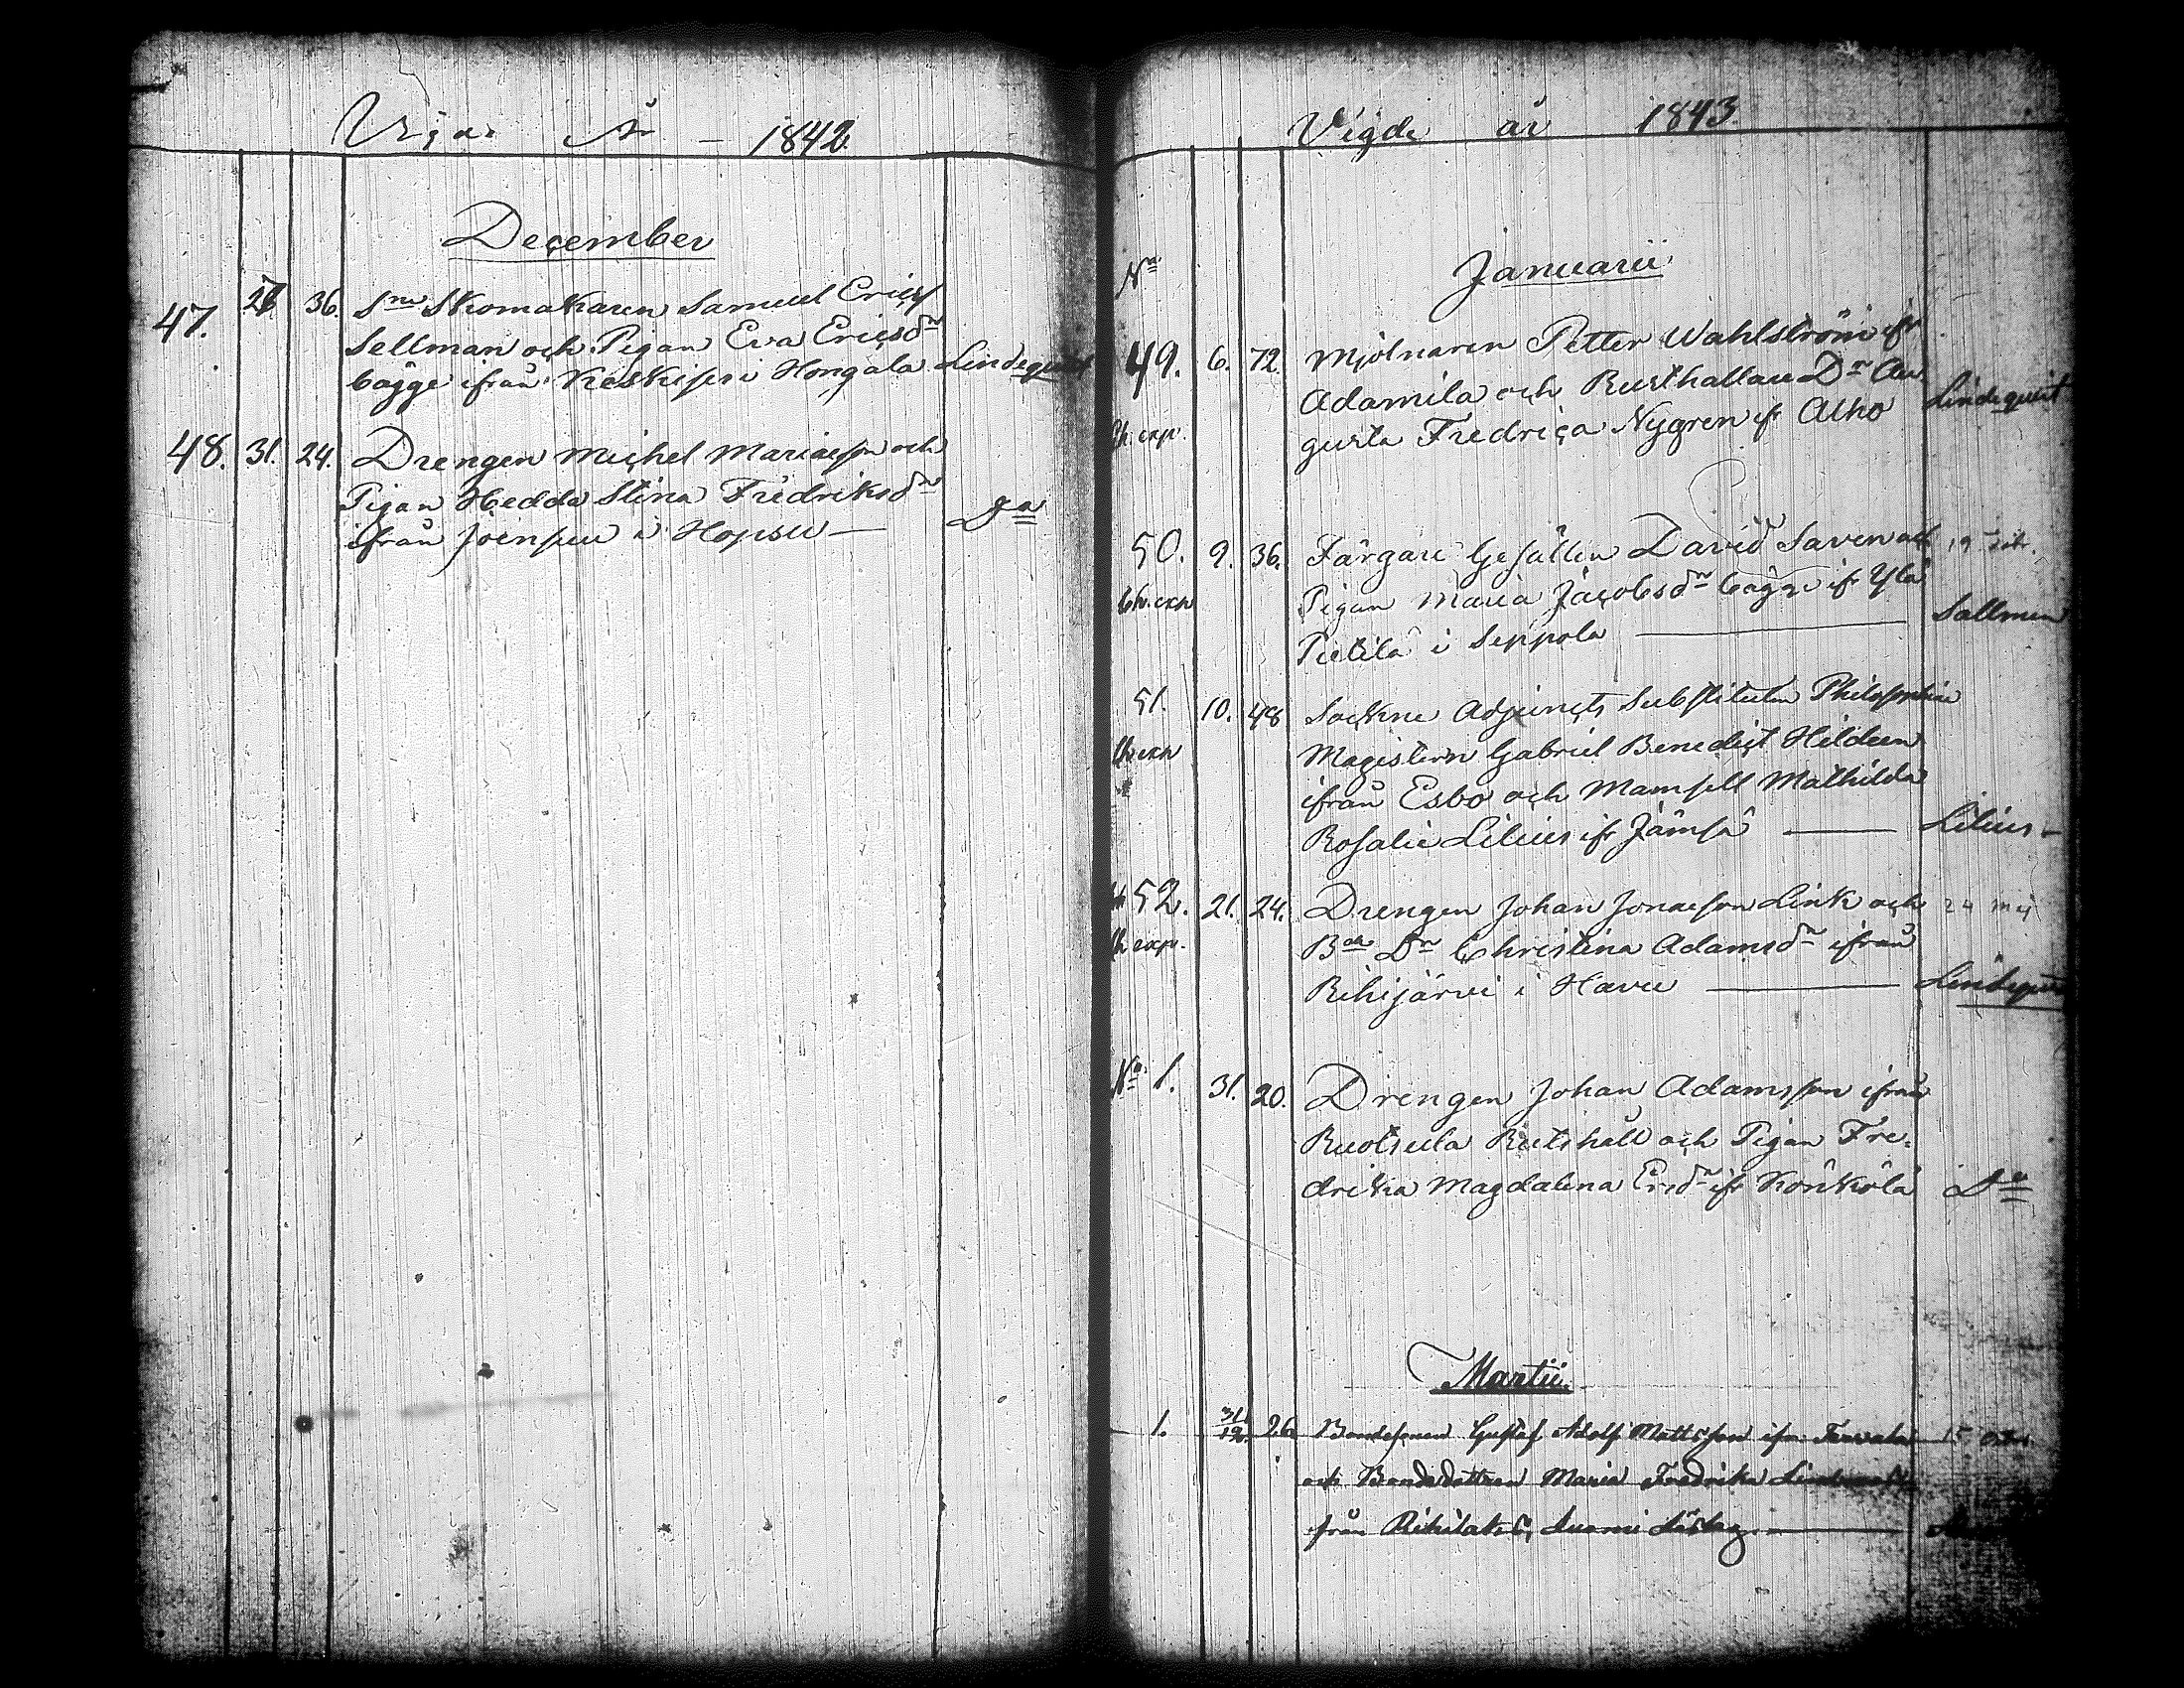 Vigde År – 1842
December
47. 26 36. Sne Skomakaren Samuel Erics
Sellman och Pigan Eva Ericsdr
bägge ifrån Keskiseri Hongola Lindequist
48. 31. 24. Drengen Michel Mariaeson och
Pigan Hedda Stina Fredriksdr
ifrån Joensuu i Hopsu — Do
Vigde år 1843
No Januarii
49. 6. 72. Mjölnaren Petter Wahlström ifr
Adamila och Rusthållare Dr Au
gusta Fredrica Nygren ifr Alho Lindequist
Ch. exp.
50. 9. 36. Färgare Gesällen David Saven och
Ch. exp. Pigan Maria Jacobsdr bägge ifr Yla
Pietilä i Seppola — Sallmen
51. 10. 48 Sockne Adjuncts Substituten Philosophiae
Ch exp Magistern Gabriel Benedict Hildeen
ifrån Esbo och Mamsell Mathilda
Rosalie Lilius ifr Jämsä — Lilius –
52. 21. 24. Drengen Johan Jonaeson Link och 24 maj
Ch exp. Bde Dr Christina Adamsdr ifrån
Rihijärvi i Havu — Lindequist
No 1. 31. 20. Drengen Johan Adamsson ifrån
Ruotsula Rutshåll och Pigan Fre-
drika Magdalena Ersdr ifr Könkölä Do
Martii.
1. 31/12. 26 Bondesonen Gustaf Adolf Mattsson ifrn
och Bondedottren Maria Fredrika
från